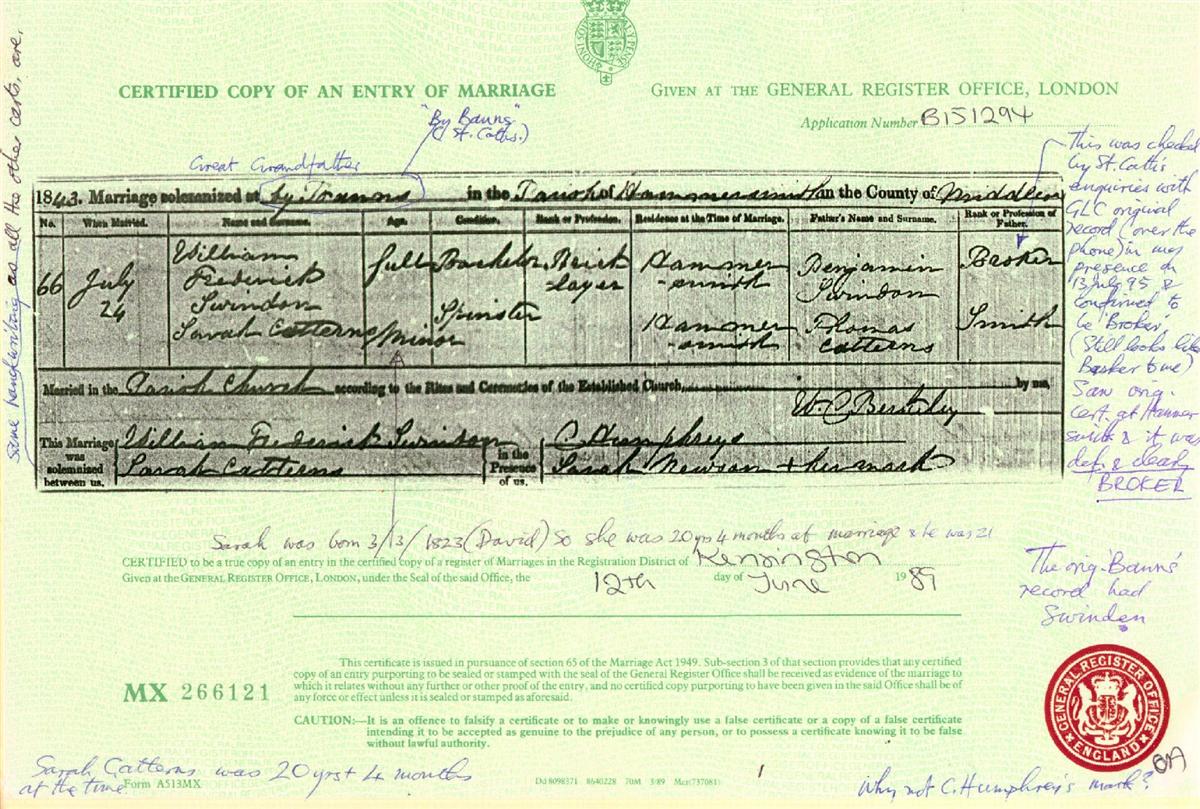 CERTIFIED COPY OF AN ENTRY OF MARRIAGE
GIVEN AT THE GENERAL REGISTER OFFICE, LONDON
Application Number B151294
"By Banns"
(St. Caths.)
Great Grandfather
1843. Marriage solemnized at in the Parish of Hammersmith in the County of Middlesex
No. When Married. Name and Surname. Age. Condition. Rank or Profession. Residence at the Time of Marriage. Father's Name and Surname. Rank or Profession of Father.
66 July 24
William Frederick Swindon full Bachelor Brick-layer Hammer-smith Benjamin Swindon Broker
Sarah Catterns Minor Spinster Hammer-smith Thomas Catterns Smith
Married in the Parish Church according to the Rites and Ceremonies of the Established Church, by me,
W. C. Berkeley
This Marriage was solemnized between us,
William Frederick Swindon
Sarah Catterns
in the Presence of us.
C Humphreys
Sarah Newson + her mark
Sarah was born 3/13/1823 (David) So she was 20 yrs 4 months at marriage & he was 21
CERTIFIED to be a true copy of an entry in the certified copy of a register of Marriages in the Registration District of Kensington
Given at the GENERAL REGISTER OFFICE, LONDON, under the Seal of the said Office, the 12th day of June 1989
This certificate is issued in pursuance of section 65 of the Marriage Act 1949. Sub-section 3 of that section provides that any certified
copy of an entry purporting to be sealed or stamped with the seal of the General Register Office shall be received as evidence of the marriage to
which it relates without any further or other proof of the entry, and no certified copy purporting to have been given in the said Office shall be of
any force or effect unless it is sealed or stamped as aforesaid.
MX 266121
CAUTION:—It is an offence to falsify a certificate or to make or knowingly use a false certificate or a copy of a false certificate
intending it to be accepted as genuine to the prejudice of any person, or to possess a certificate knowing it to be false
without lawful authority.
Form A513MX
Dd 8098371 8640228 70M 3/89 Mcr(737081)
Sarah Catterns was 20 yrs + 4 months
at the time
Why not C. Humphrey's mark?
This was checked
by St. Cath's
enquiries with
GLC original
record (over the
phone) in my
presence on
13 July 95 &
confirmed to
be 'Broker'
(Still looks like
Basker to me)
Saw orig.
cert. at Hammer
smith & it was
def. & clearly
BROKER
The orig. 'Banns'
record had
Swinden
GENERAL REGISTER OFFICE
ENGLAND
Same handwriting as all the other certs. are.